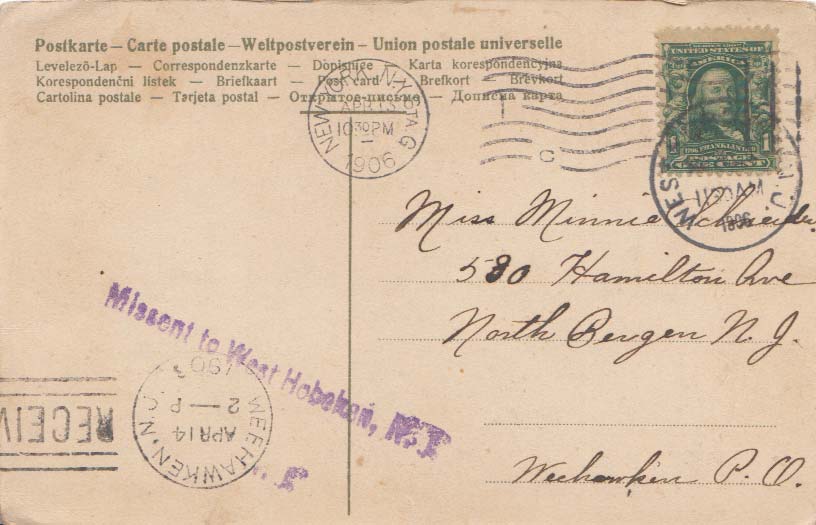 Postkarte — Carte postale — Weltpostverein — Union postale universelle
Levelező-Lap — Correspondenzkarte — Dopisnice — Karta korespondencyjna
Korespondenční lístek — Briefkaart — Post card — Brefkort — Brevkort
Cartolina postale — Tarjeta postal — Открытое письмо — Дописна карта
NEW YORK, N.Y. STA. G
APR 13
10 30 PM
1906
SERIES 1902
UNITED STATES OF AMERICA
1706 FRANKLIN 1790
POSTAGE
1 ONE CENT 1
C
WEST N.J.
1906
Miss Minnie Schneider
530 Hamilton Ave
North Bergen N. J.
Weehawken P. O.
Missent to West Hoboken, N. J.
WEEHAWKEN, N.J.
APR 14
2 — P
190
RECEIV